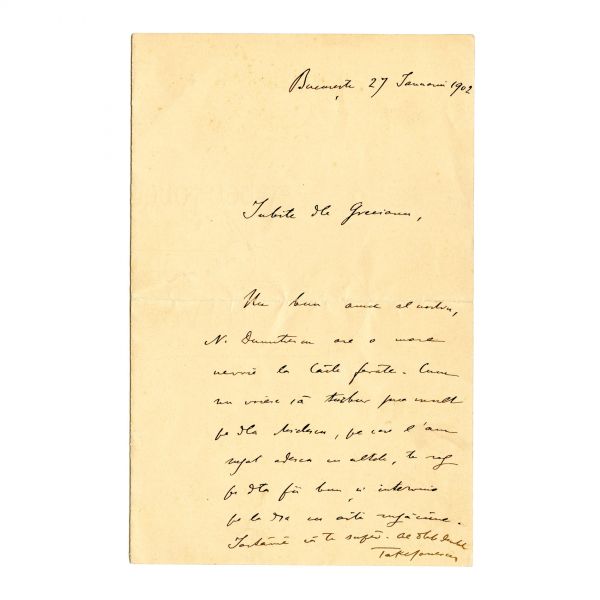 București 27 Ianuarie 1902
Iubite dle Greceanu,
Un bun amic al nostru,
N. Dumitrescu are o mare
nevoie la Căile ferate. Cum
nu voiesc să turbur prea mult
pe dla pe care l'am
rugat adesea cu altele, te rog
pe dta fii bun și intervino
pe la dsa cu astă rugăciune.
Iartămă că te supăr. al dtale devotat
Take Ionescu